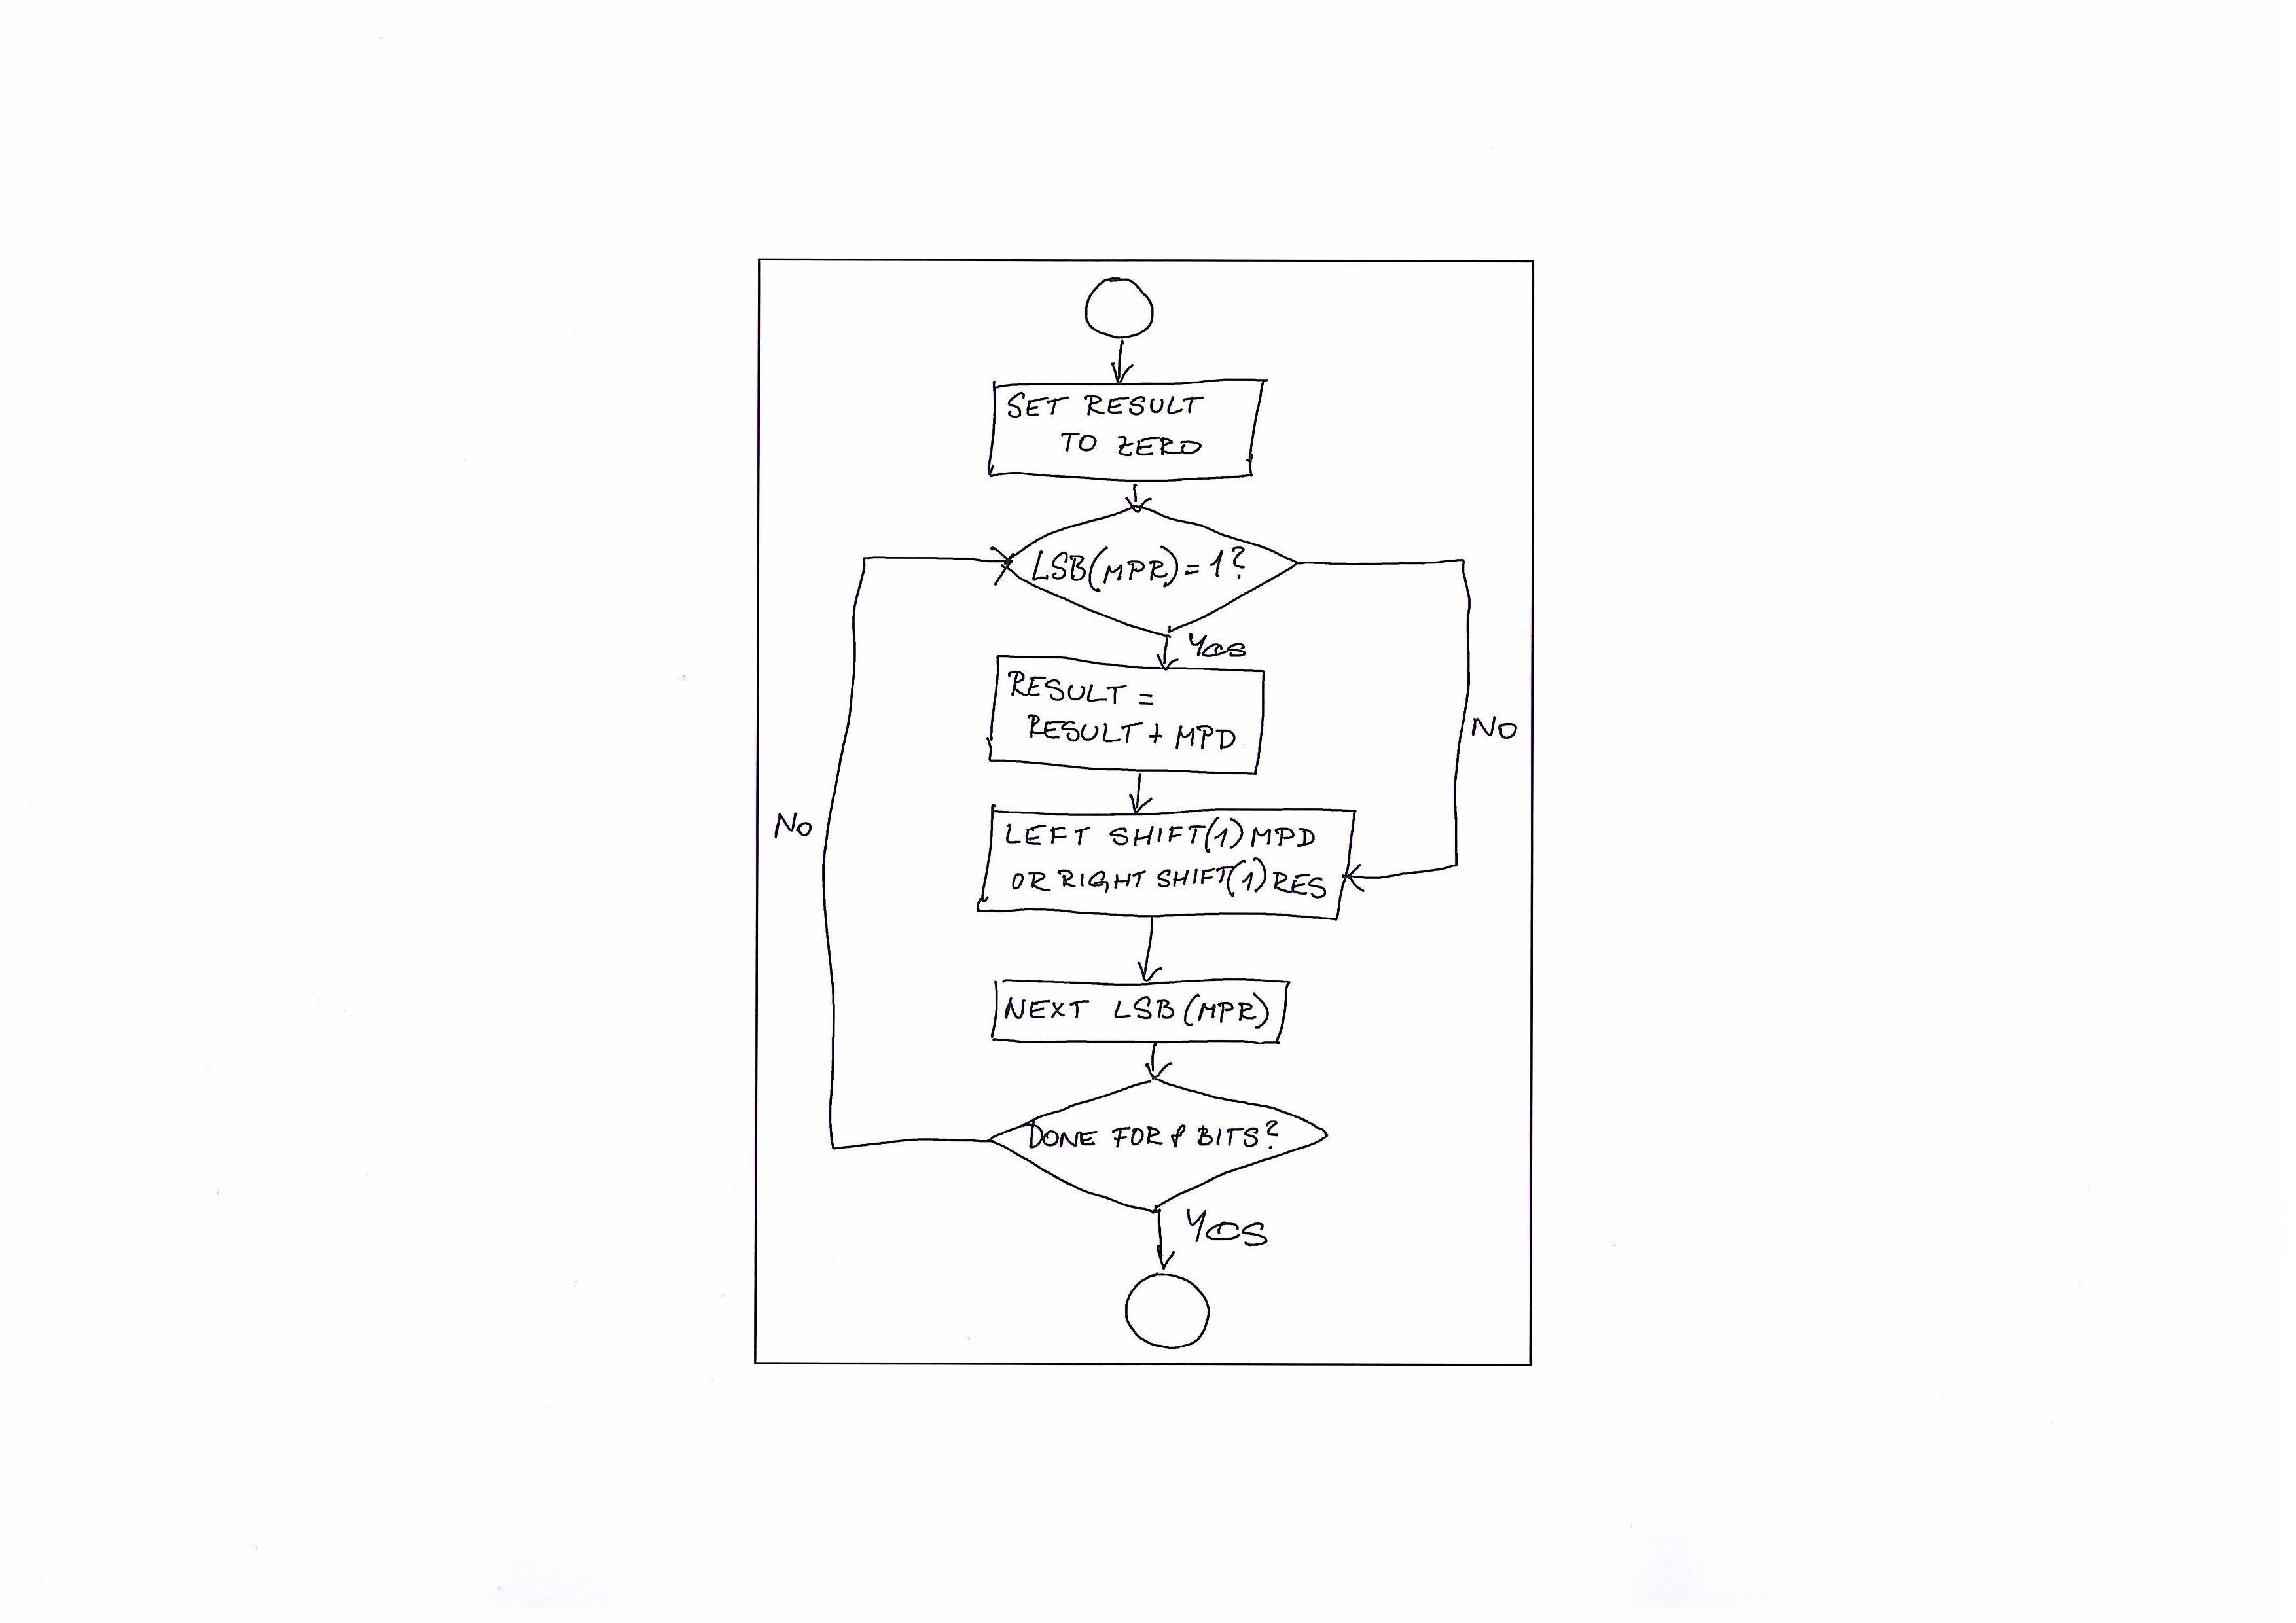 SET RESULT
TO ZERO
LSB(MPR)=1?
YES
RESULT =
RESULT + MPD
NO
LEFT SHIFT(1) MPD
OR RIGHT SHIFT(1) RES
No
NEXT LSB (MPR)
DONE FOR BITS?
YES